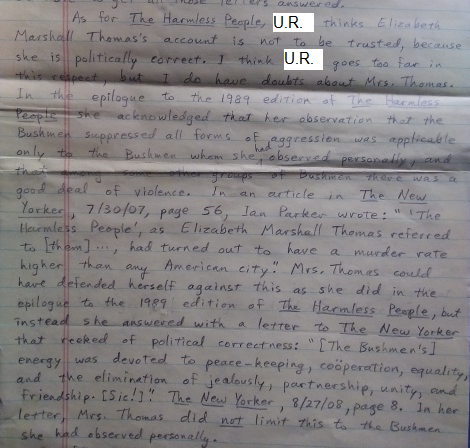 to get all those letters answered.
As for The Harmless People, U.R. thinks Elizabeth
Marshall Thomas's account is not to be trusted, because
she is politically correct. I think U.R. goes too far in
this respect, but I do have doubts about Mrs. Thomas.
In the epilogue to the 1989 edition of The Harmless
People she acknowledged that her observation that the
Bushmen suppressed all forms of aggression was applicable
only to the Bushmen whom she had observed personally, and
that among some other groups of Bushmen there was a
good deal of violence. In an article in The New
Yorker, 7/30/07, page 56, Ian Parker wrote: "'The
Harmless People', as Elizabeth Marshall Thomas referred
to [them]..., had turned out to have a murder rate
higher than any American city." Mrs. Thomas could
have defended herself against this as she did in the
epilogue to the 1989 edition of The Harmless People, but
instead she answered with a letter to The New Yorker
that reeked of political correctness: "[The Bushmen's]
energy was devoted to peace-keeping, coöperation, equality,
and the elimination of jealously, partnership, unity, and
friendship. [Sic!]" The New Yorker, 8/27/08, page 8. In her
letter, Mrs. Thomas did not limit this to the Bushmen
she had observed personally.